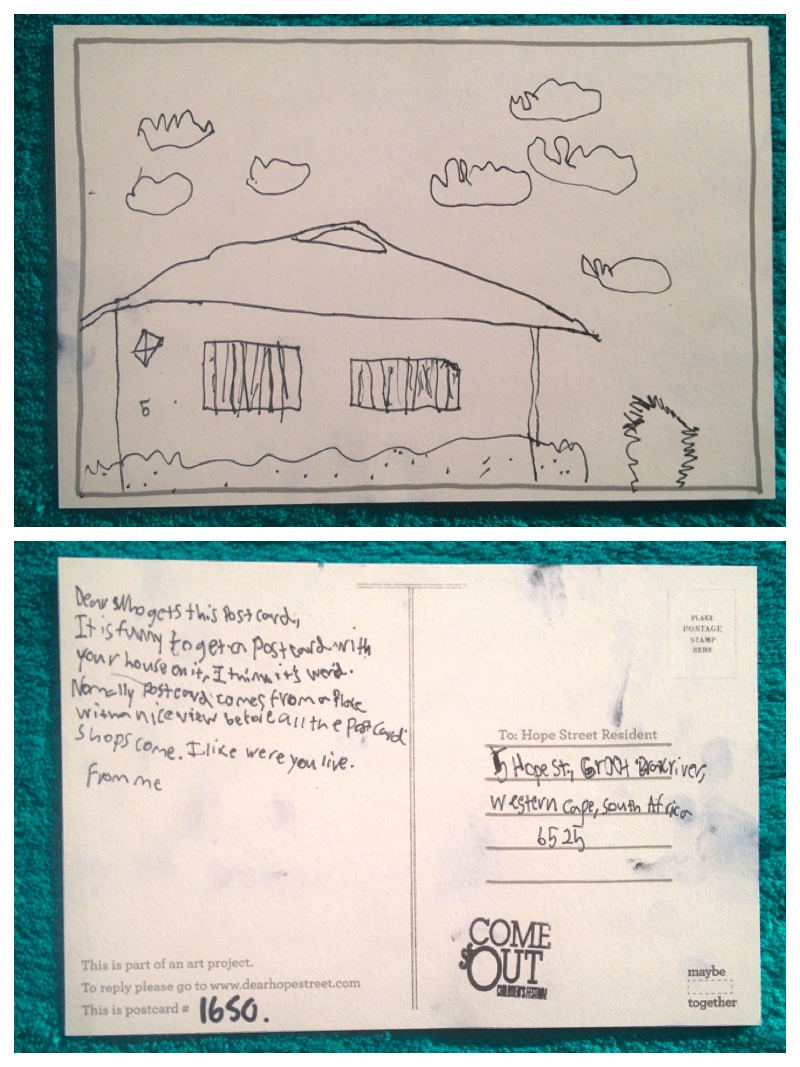 5
Dear who gets this Post card,
It is funny to get a Postcard with
your house on it, I think it's weird.
Normally Postcard comes from a Place
with a nice view before all the Postcard
Shops come. I like were you live.
From me
This is part of an art project.
To reply please go to www.dearhopestreet.com
This is postcard # 1650.
PLACE
POSTAGE
STAMP
HERE
To: Hope Street Resident
5 Hope St, Groot Brakrivier,
Western Cape, South Africa
6525
COME
OUT
CHILDREN'S FESTIVAL
maybe
together